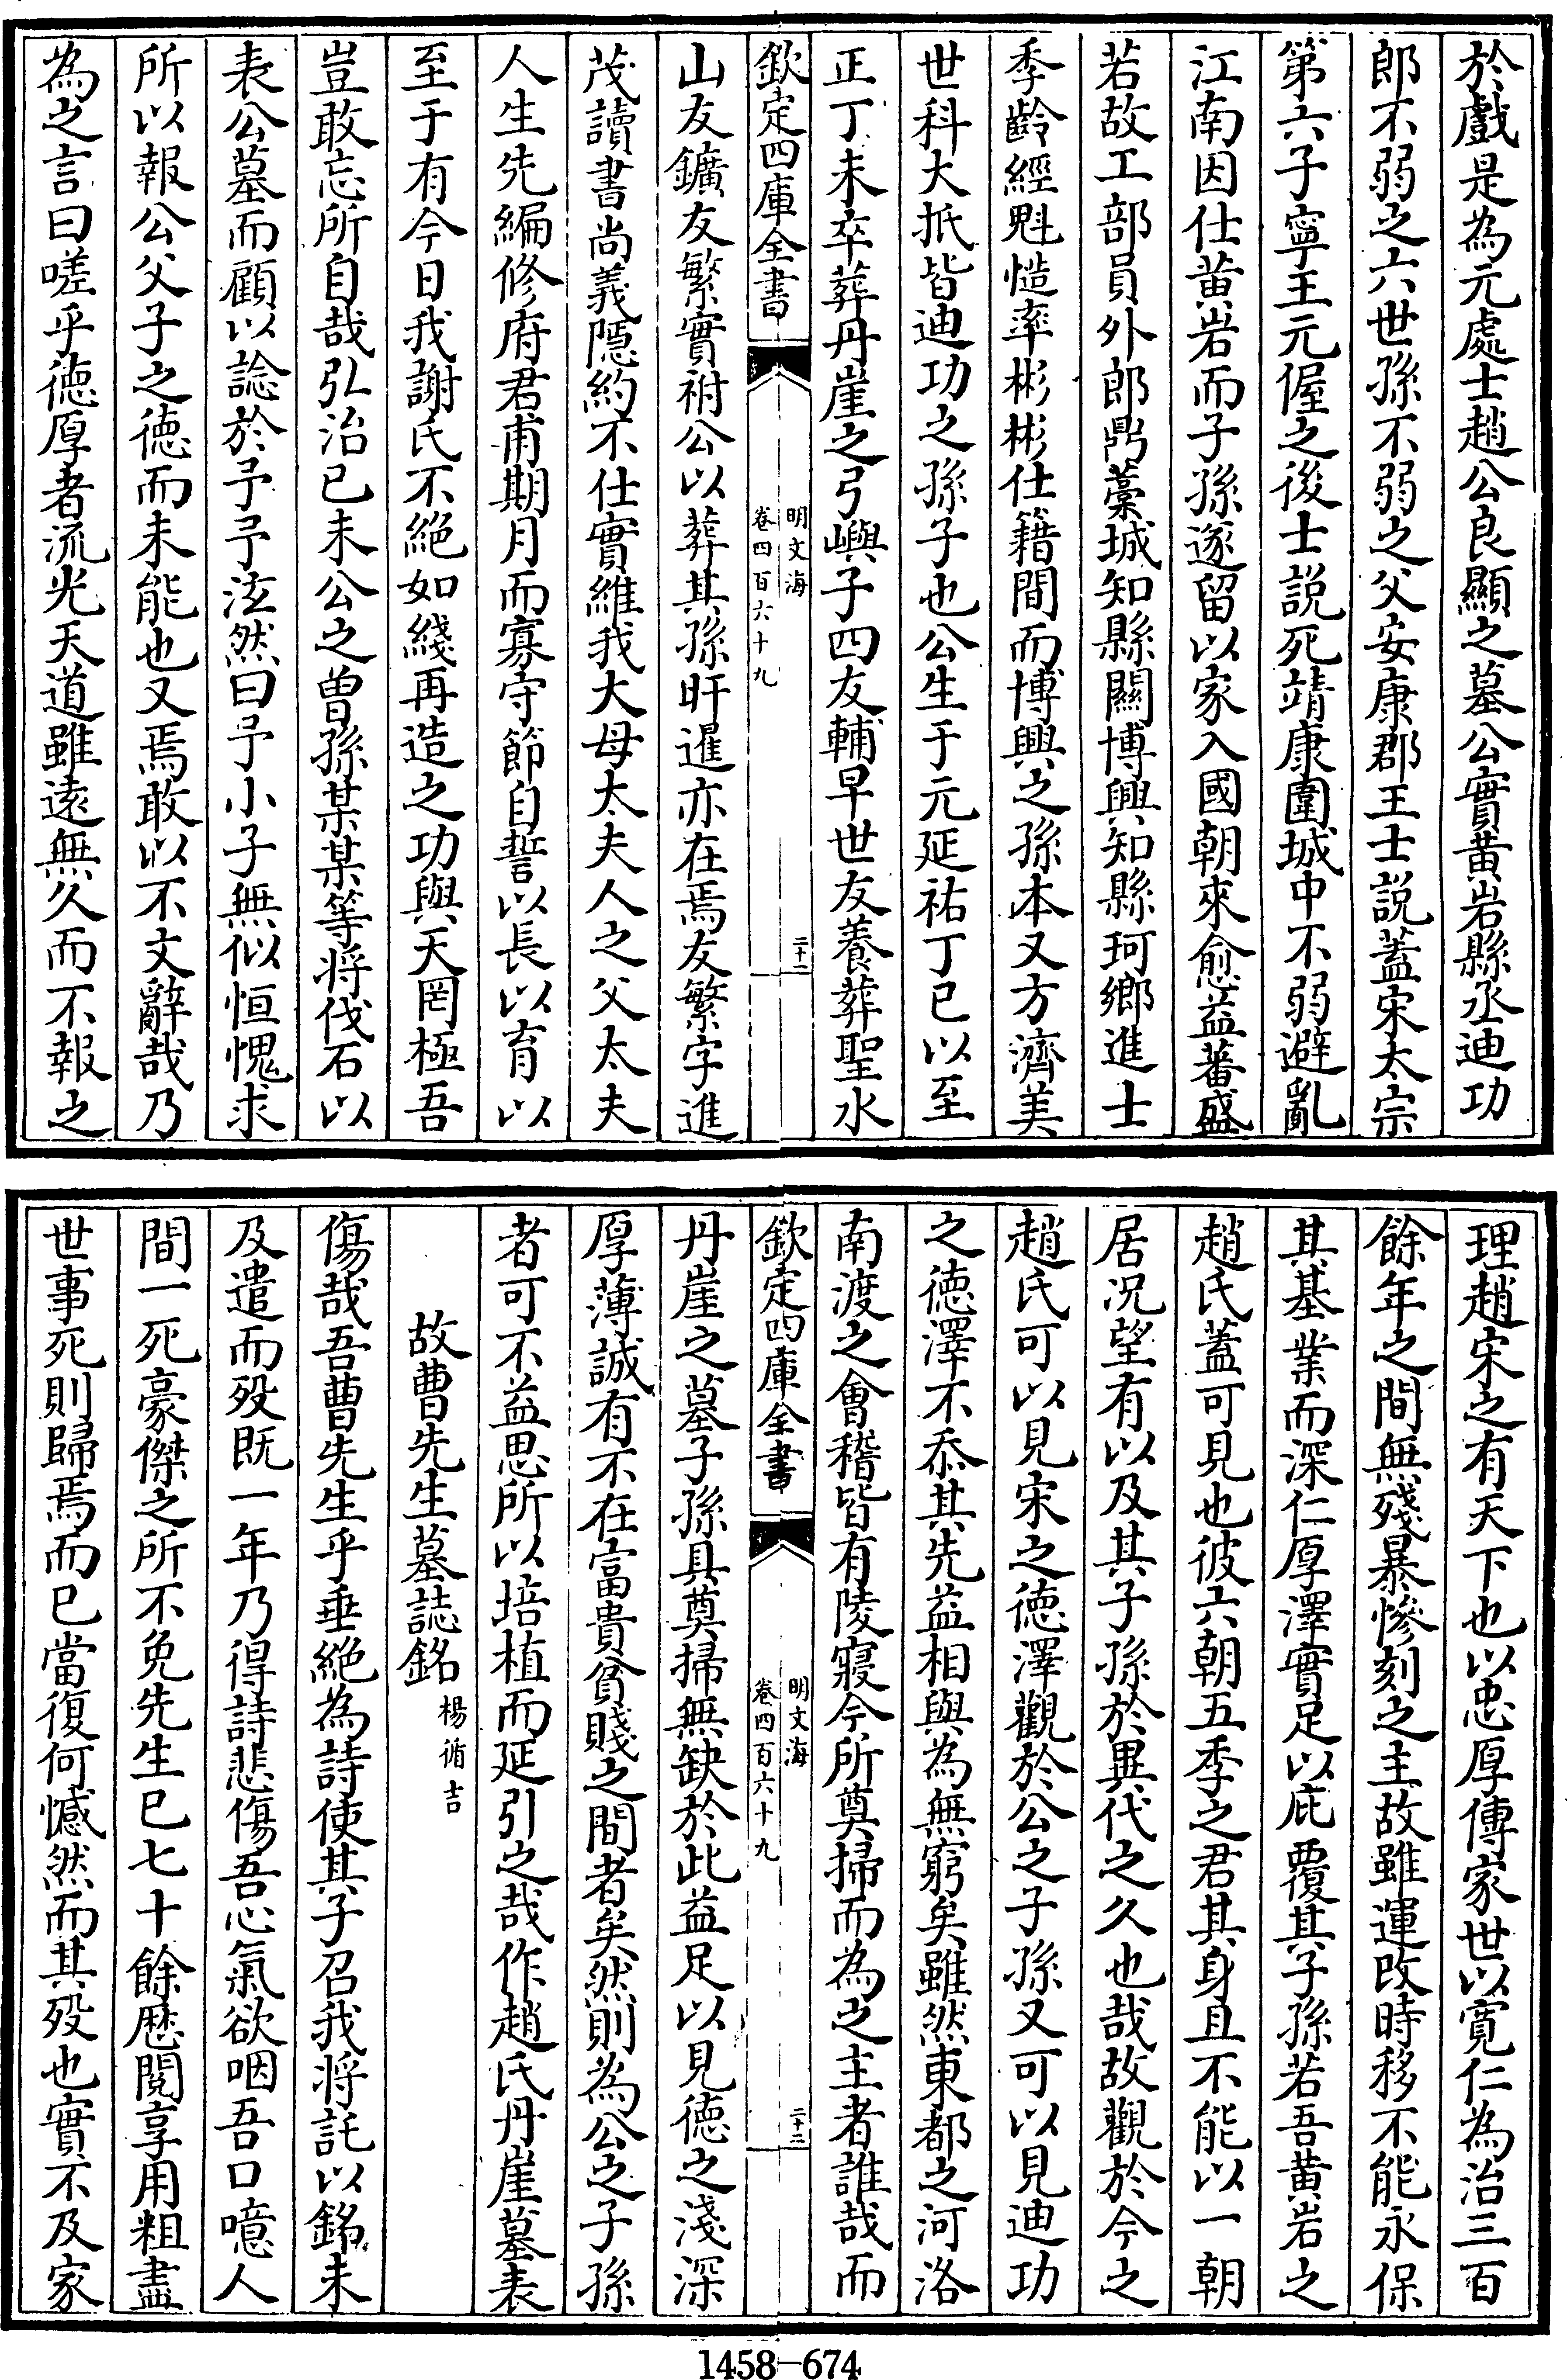 於戲是為元處士趙公良顯之墓公實黄岩縣丞迪功
郎不弱之六世孫不弱之父安康郡王士説蓋宋太宗
第六子寧王元偓之後士説死靖康圍城中不弱避亂
江南因仕黄岩而子孫遂留以家入國朝來愈益蕃盛
若故工部員外郎鼎藁城知縣關博興知縣珂鄉進士
季齡經魁慥率彬彬仕籍間而博興之孫本又方濟美
世科大抵皆迪功之孫子也公生于元延祐丁已以至
正丁未卒葬丹崖之弓嶼子四友輔早世友養葬聖水
欽定四庫全書
明文海
卷四百六十九
二十一
山友鑛友繁實祔公以葬其孫旰暹亦在焉友繁字進
茂讀書尚義隱約不仕實維我大母太夫人之父太夫
人生先編修府君甫期月而寡守節自誓以長以育以
至于有今日我謝氏不絶如綫再造之功與天罔極吾
豈敢忘所自哉弘治已未公之曽孫某某等將伐石以
表公墓而顧以諗於予予泫然曰予小子無似恒愧求
所以報公父子之徳而未能也又焉敢以不文辭哉乃
為之言曰嗟乎徳厚者流光天道雖遠無久而不報之
理趙宋之有天下也以忠厚傳家世以寛仁為治三百
餘年之間無殘暴慘刻之主故雖運改時移不能永保
其基業而深仁厚澤實足以庇覆其子孫若吾黄岩之
趙氏蓋可見也彼六朝五季之君其身且不能以一朝
居况望有以及其子孫於異代之久也哉故觀於今之
趙氏可以見宋之徳澤觀於公之子孫又可以見迪功
之徳澤不忝其先益相與為無窮矣雖然東都之河洛
南渡之會稽皆有陵寢今所奠掃而為之主者誰哉而
欽定四庫全書
明文海
卷四百六十九
二十二
丹崖之墓子孫具奠掃無缺於此益足以見徳之淺深
厚薄誠有不在富貴貧賤之間者矣然則為公之子孫
者可不益思所以培植而延引之哉作趙氏丹崖墓表
故曹先生墓誌銘 楊循吉
傷哉吾曹先生乎垂絶為詩使其子召我將託以銘未
及遣而殁既一年乃得詩悲傷吾心氣欲咽吾口噫人
間一死豪傑之所不免先生已七十餘歴閲享用粗盡
世事死則歸焉而已當復何憾然而其殁也實不及家
1458—674